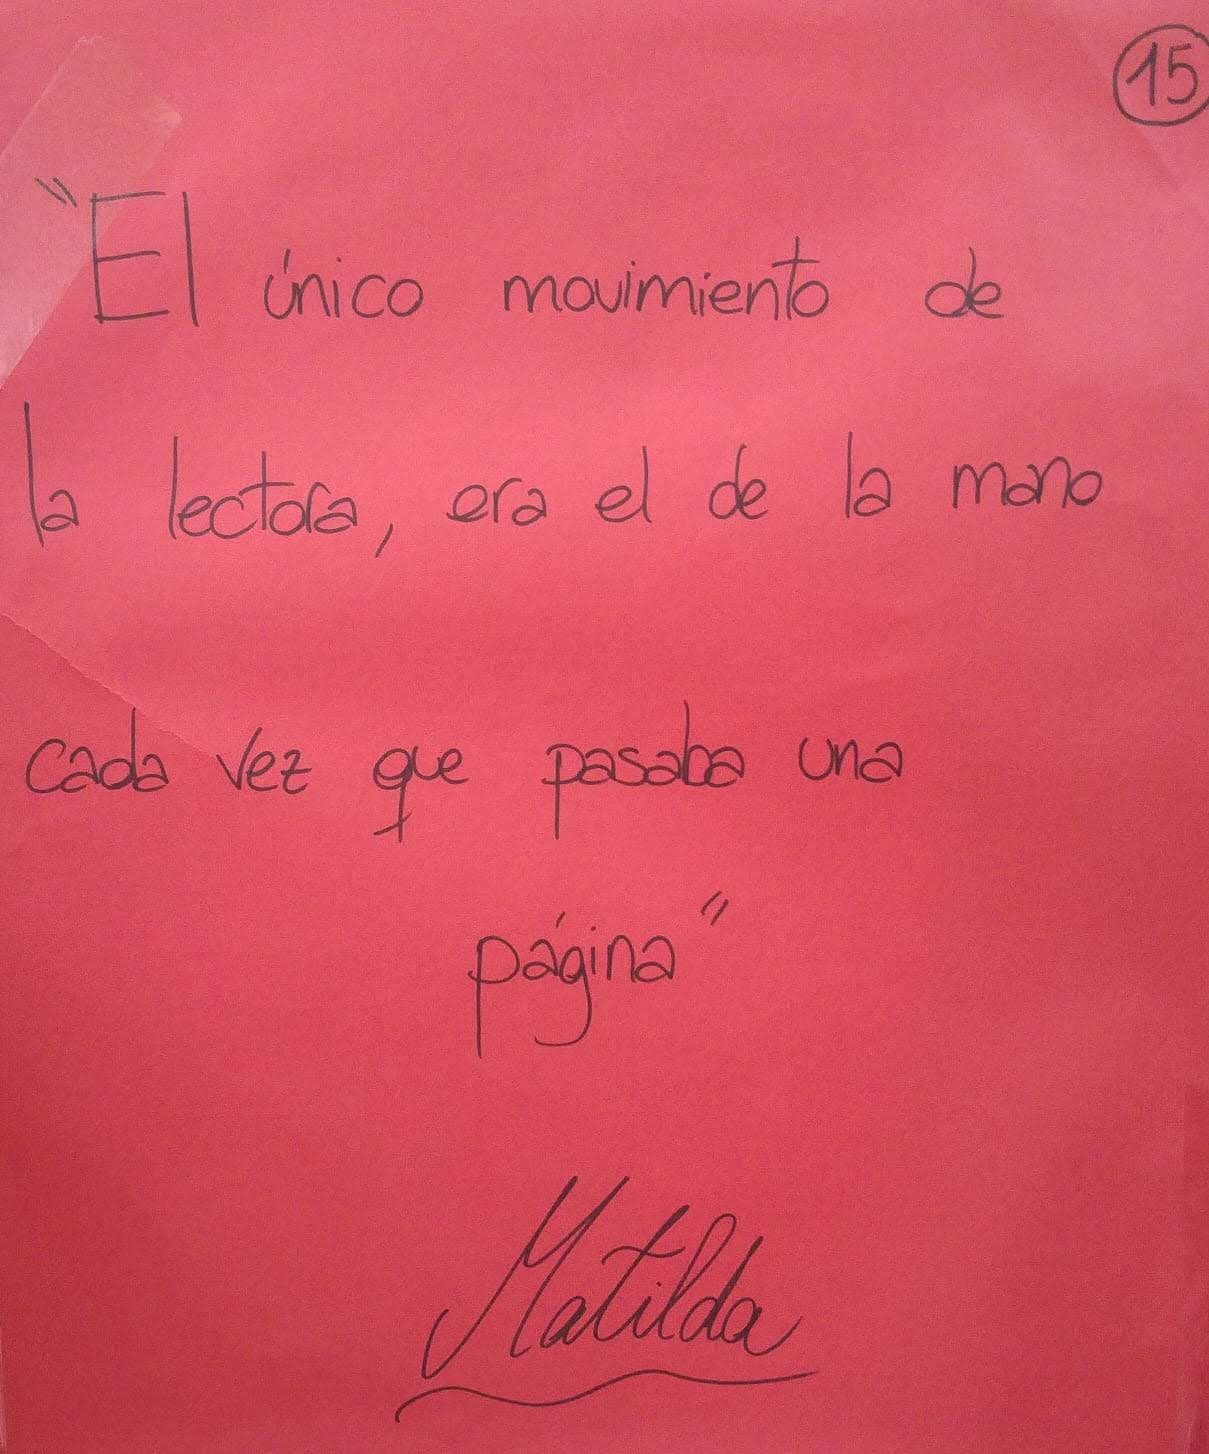 15
"El único movimiento de
la lectora, era el de la mano
cada vez que pasaba una
página"
Matilda